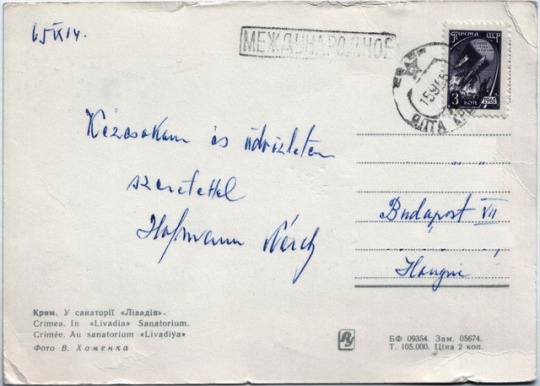 65 IX 14.
МЕЖДУНАРОДНОЕ
ПОЧТА СССР
3 КОП.
ЯЛТА
Kézcsókom és üdvözletem
szeretettel
Hofmann
Budapest VII
Hongrie
Крим. У санаторії «Лівадія».
Crimea. In «Livadia» Sanatorium.
Crimée. Au sanatorium «Livadiya»
Фото В. Хоменка
БФ 09354. Зам. 05674.
Т. 105.000. Ціна 2 коп.